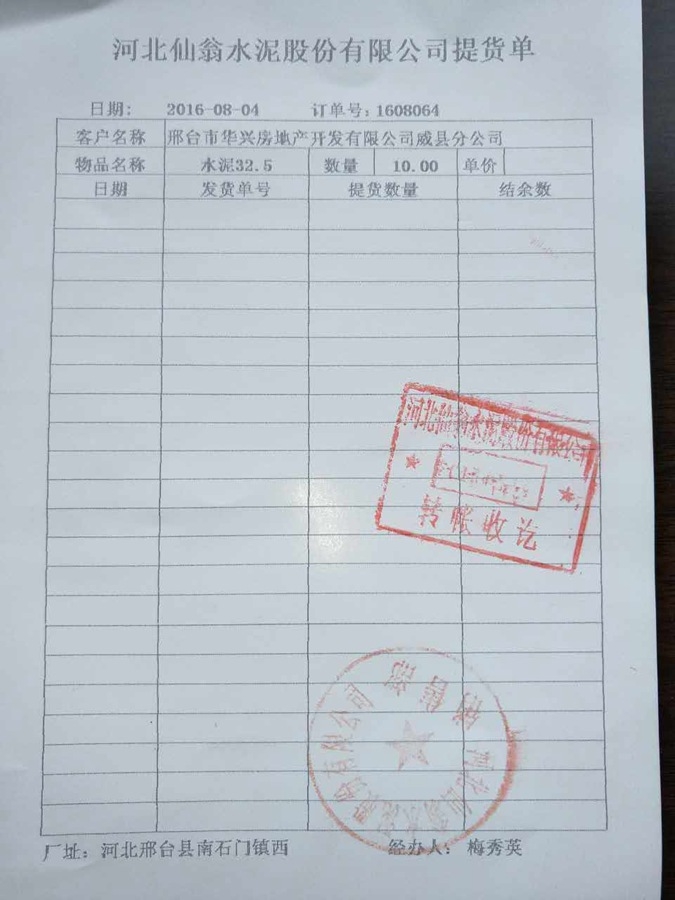 河北仙翁水泥股份有限公司提货单
日期: 2016-08-04 订单号: 1608064
客户名称 邢台市华兴房地产开发有限公司威县分公司
物品名称 水泥32.5 数量 10.00 单价
日期 发货单号 提货数量 结余数
河北仙翁水泥股份有限公司
转帐收讫
河北仙翁水泥股份有限公司
销售部
厂址: 河北邢台县南石门镇西 经办人: 梅秀英